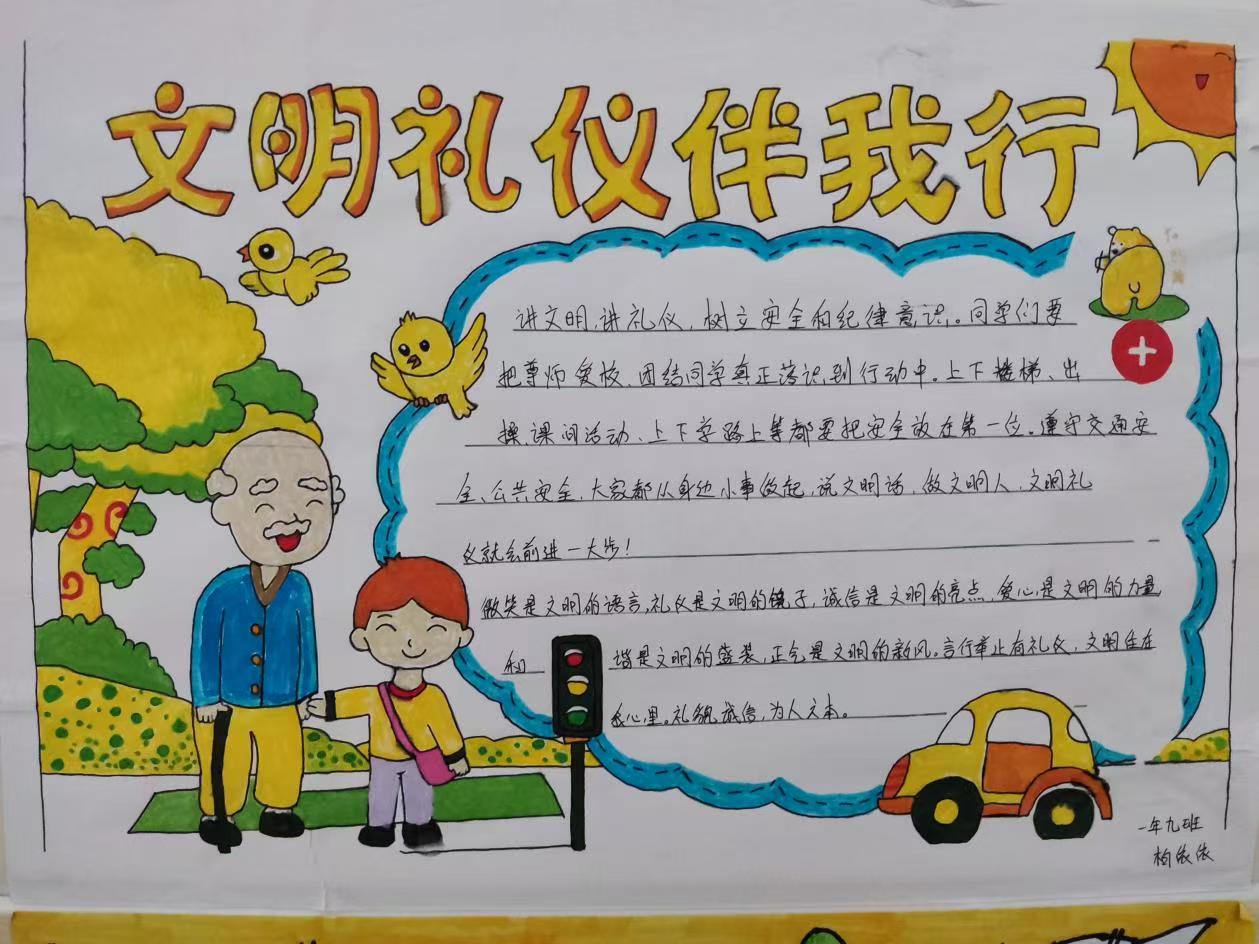 文明礼仪伴我行
讲文明,讲礼仪,树立安全和纪律意识。同学们要
把尊师爱校、团结同学真正落识到行动中。上下楼梯、出
操、课间活动、上下学路上等都要把安全放在第一位。遵守交通安
全、公共安全,大家都从身边小事做起,说文明话,做文明人,文明礼
仪就会前进一大步!
微笑是文明的语言,礼仪是文明的镜子,诚信是文明的亮点,爱心是文明的力量
和谐是文明的盛装,正气是文明的新风。言行举止有礼仪,文明住在
我心里。礼貌诚信,为人之本。
一年九班
柏依依